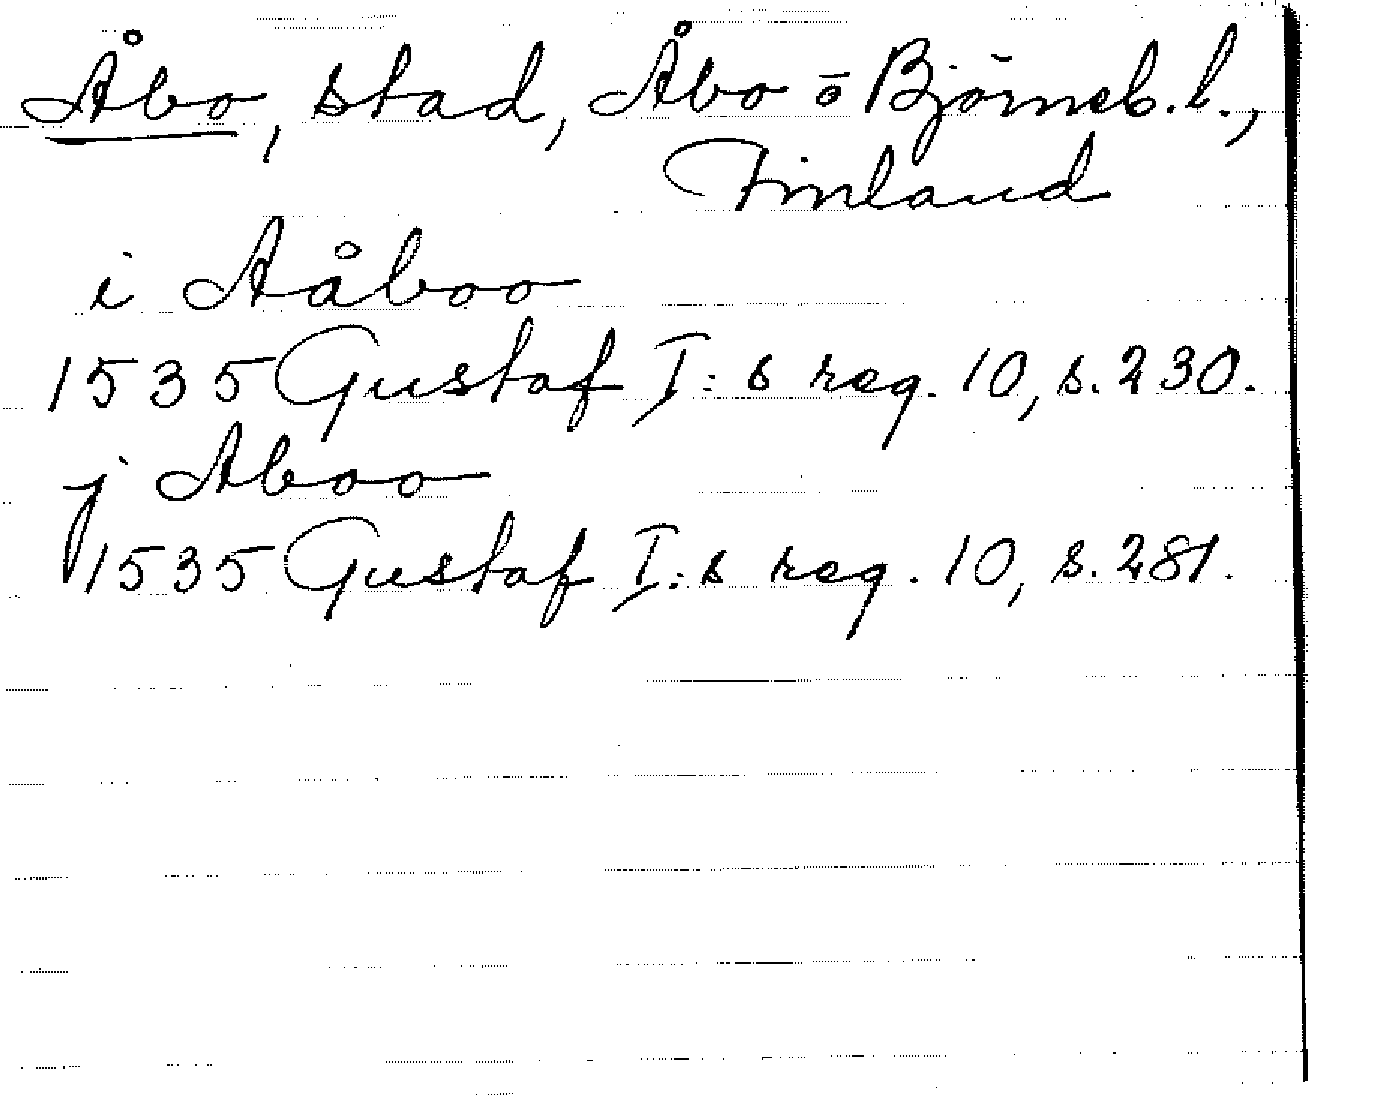 Åbo, stad, Åbo ō Björneb. l.,
Finland
i Aåboo
1535 Gustaf I:s reg. 10, s. 230.
j Aboo
1535 Gustaf I:s reg. 10, s. 281.